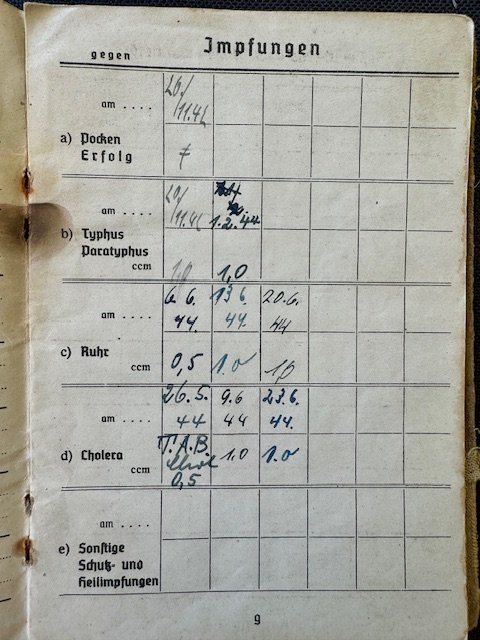 Impfungen
gegen
am .... 20./11.42
a) Pocken
Erfolg
am .... 20/11.42 1.2.44
b) Typhus
Paratyphus
ccm 1,0 1,0
am .... 6.6. 13 6. 20.6.
44. 44. 44
c) Ruhr
ccm 0,5 1.0 1,0
am .... 26.5. 9.6 23.6.
44 44 44.
d) Cholera T.A.B.
ccm 1.0 1.0
0,5
am ....
e) Sonstige
Schutz- und
Heilimpfungen
9